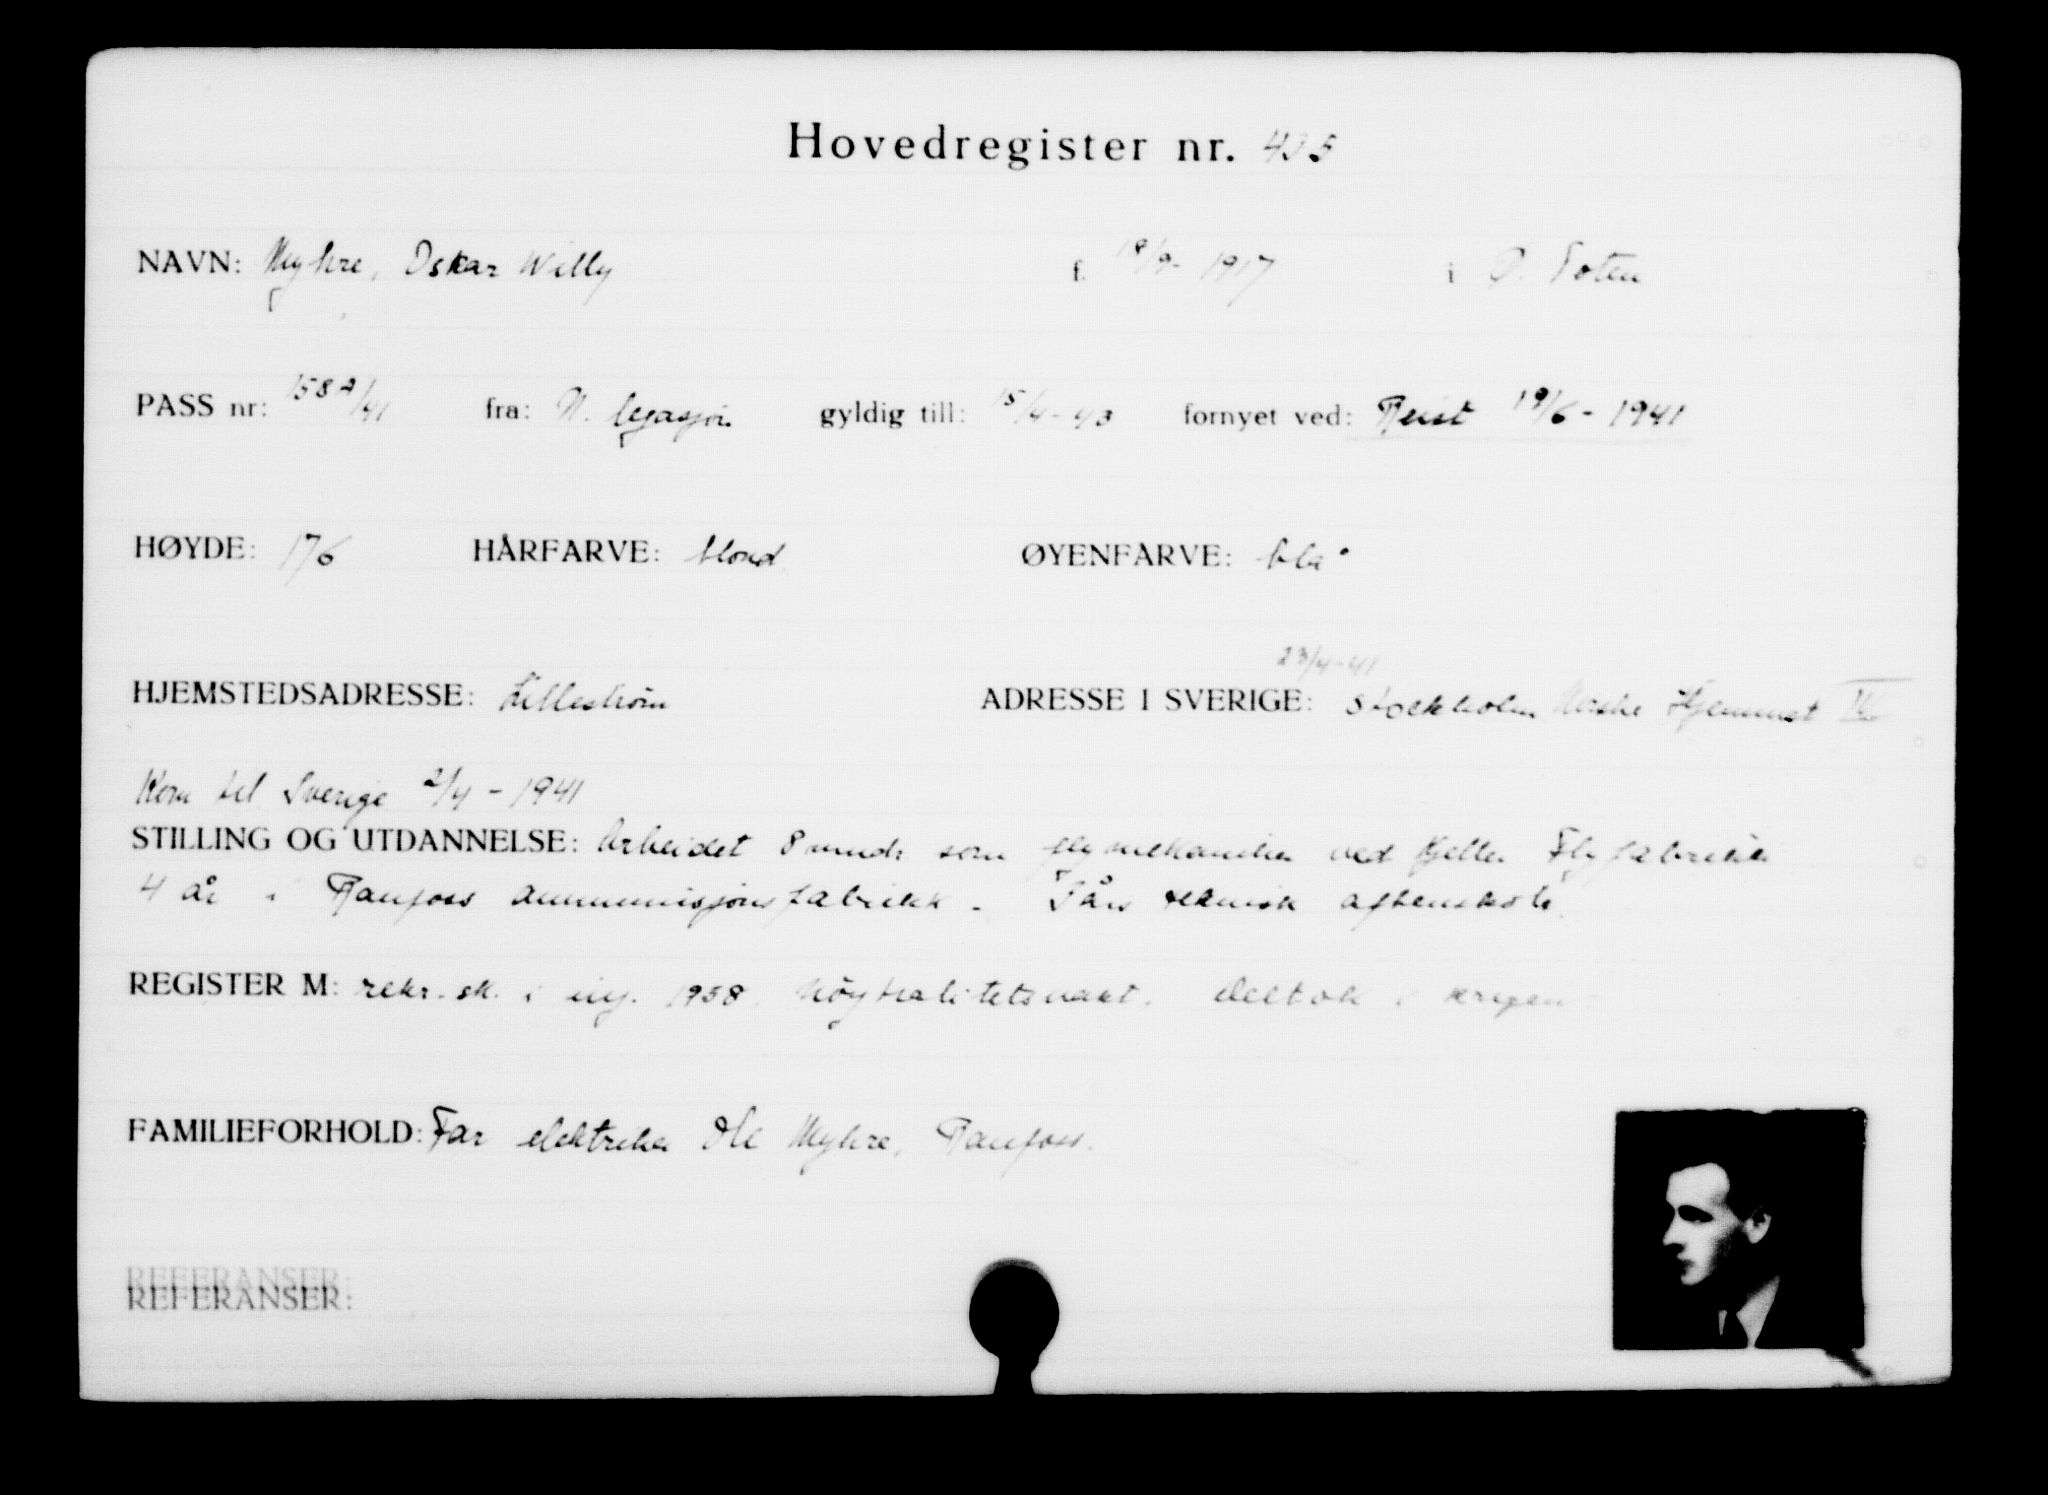 Hovedregister nr. 435
NAVN: Myhre, Oskar Willy f. 18/9- 1917 i Ø. Toten
PASS nr: 1582/41 fra: N. legasjon gyldig till: 15/4-43 fornyet ved: Reist 19/6 - 1941
HØYDE: 176 HÅRFARVE: blond ØYENFARVE: blå
23/4-41
HJEMSTEDSADRESSE: Lillestrøm ADRESSE I SVERIGE: Stockholm Hjemmet
Kom til Sverige 2/4 - 1941
STILLING OG UTDANNELSE: Arbeidet 8 mnd. som flymekaniker ved Kjeller Flyfabrikk
4 år i Raufoss ammunisjonsfabrikk - års teknisk aftenskole.
REGISTER M: rekr. sk. i ing. 1938. Nöytralitetsvakt. Deltok i krigen.
FAMILIEFORHOLD: Far elektriker Ole Myhre, Raufoss.
REFERANSER:
REFERANSER: